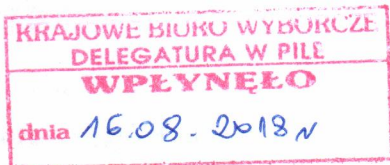 KRAJOWE BIURO WYBORCZE
DELEGATURA W PILE
WPŁYNĘŁO
dnia 16.08.2018 r